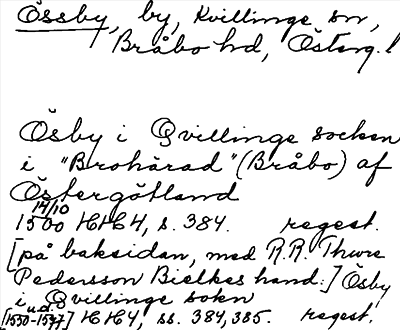 Össby, by, Kvillinge sn,
Bråbo hd, Österg. l
Ösby i Qvillinge socken
i "Brohärad" (Bråbo) af
Östergötland
14/10
1500 HH4, s. 384. regest.
[på baksidan, med R.R. Thure
Pedersson Bielkes hand:] Ösby
i Qvillinge sokn
u.d.
[1530-1577] HH4, ss. 384, 385. regest.